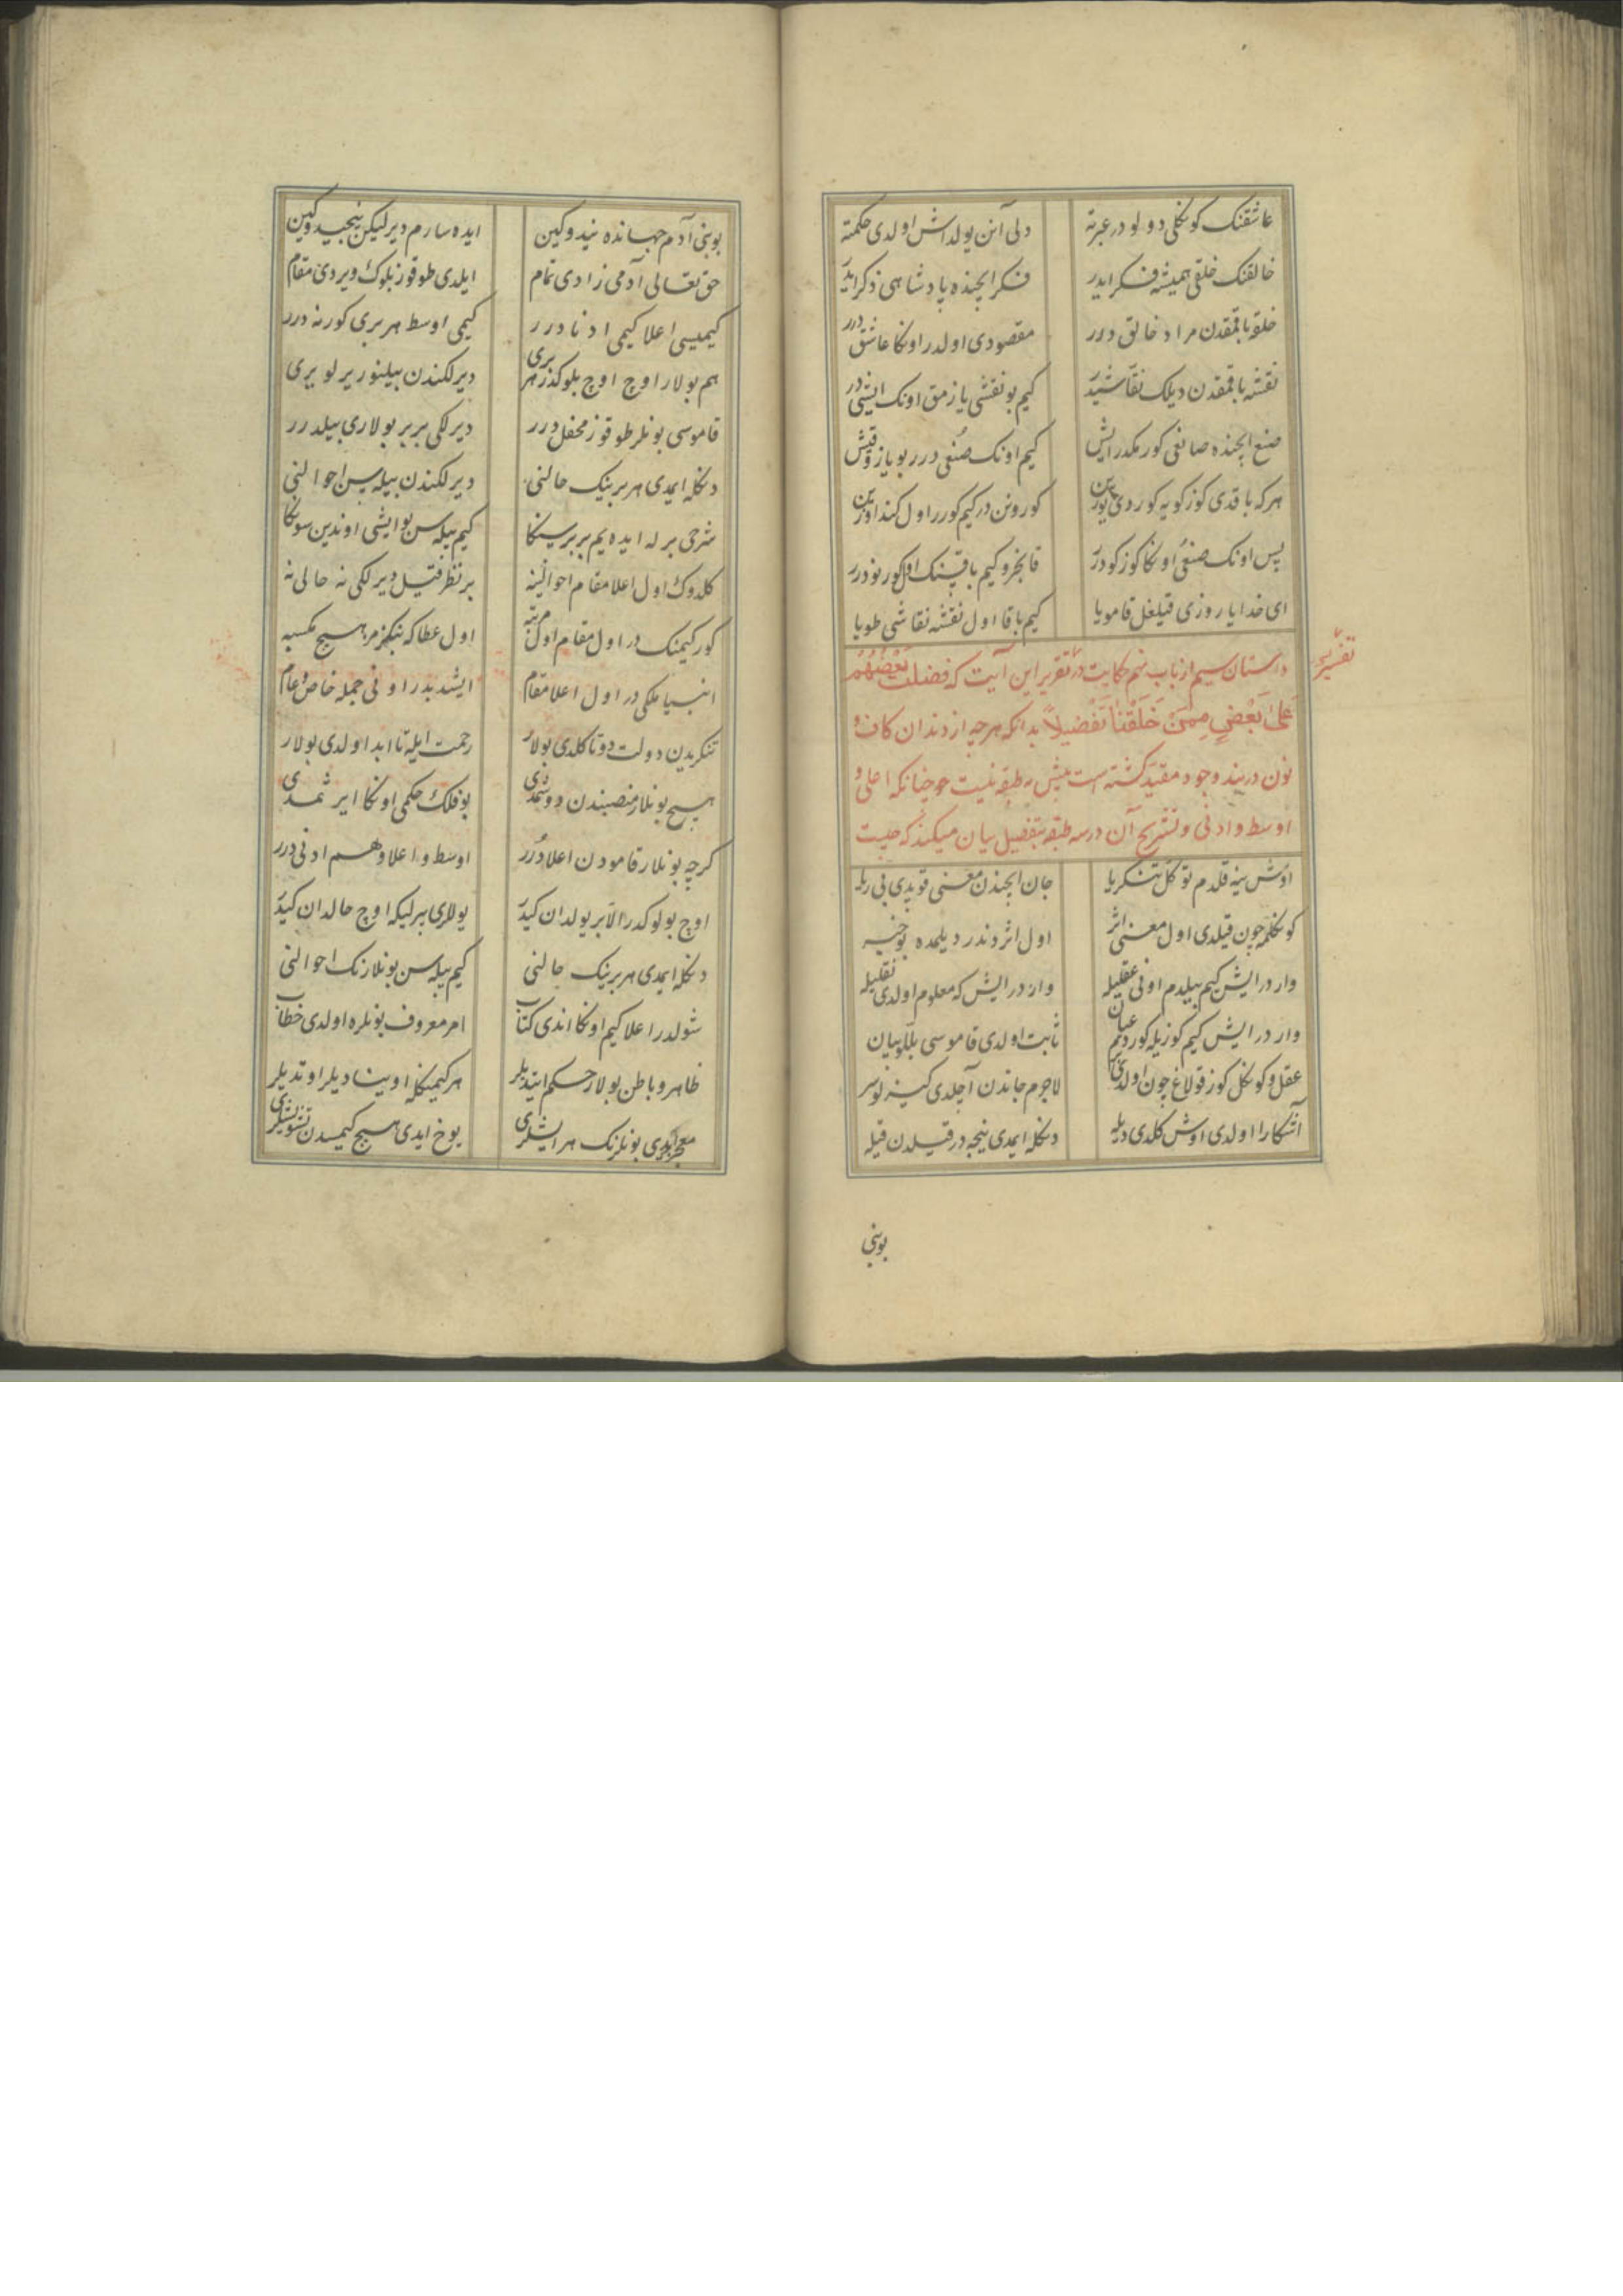 عاشقنک کوکلی دولو در عبرته دلی آنن یولداش اولدی حکمته
خالقنک خلقی همیشه فکر ایدر فکر ایچنده پادشاهی ذکر ایدر
خلقه باقمقدن مراد خالق درر مقصودی اولدر اوکا عاشق درر
نقشه باقمقدن دیلک نقاشیدر کیم بو نقشی یازمق اونک ایشی در
صنع ایچنده صانعی کورمکدر ایش کیم اونک صنعی درر بو یاز و قیش
هرکه باقدی کوزکویه کوردی یوزین کورونن در کیم کورر اول کندوزین
پس اونک صنعی اوکا کوزکو درر قانجرو کیم باقیک اول کورنو درر
ای خدایا روزی قیلغل قامویا کیم باقا اول نقشه نقاشی طویا
داستان سیم از باب نهم حکایت در تقریر این آیت که فضلت بعضهم
تفسیر
علی بعض ممن خلقنا تفضیلا بدانکه هرچه از دندان کاف و
نون در بند وجود مقید کشته است بیش سه طبقه نیست چنانکه اعلی و
اوسط و ادنی و تشریح آن در سه طبقه بتفصیل بیان میکند که چیست
اوش ینه قلدم توکل تنکریا جان ایچندن معنی قویدی بی ریا
کوکلمه چون قیلدی اول معنی اثر اول اثردندر دیلمده بو خبر
وار در ایش کیم بیلدم اونی عقلیله وار در ایش که معلوم اولدی نقلیله
وار در ایش کیم کوزیله کوردیم عیان ثابت اولدی قاموسی بللو بیان
عقل و کوکل کوز قولاغ چون اولدی لاجرم جاندن آچلدی
آشکارا اولدی اوش کلدی دیله دکله ایمدی نیجه در قیلدن قیله
بو بنی
بو بنی آدم جهانده نیدوکین ایده سارم دیرلیکن نیجیدوکین
حق تعالی آدمی زادی تمام ایلدی طوقوز بلوک ویردی مقام
کیمیسی اعلا کیمی ادنا درر کیمی اوسط هر بری کورنه درر
هم بولار اوچ اوچ بلوکدر هر بری دیرلکندن بیلنوریر لو یری
قاموسی بونلر طوقوز محفل درر دیرلکی بربر بولاری بیلدرر
دکله ایمدی هر برینک حالنی دیرلکندن بیله سن احوالنی
شرحی برله ایده یم بربر سکا کیم بیله سن بو ایشی اوندین سوکا
کلدوک اول اعلا مقام احوالینه بر نظر قیل دیرلکی نه حالی نه
کور کیمنک در اول مقام اول مرتبه اول عطا که بنکزمز هیچ کسبه
انبیا ملکی در اول اعلا مقام ایشدبدر اونی جمله خاص و عام
تنکریدن دولت دوتا کلدی بولار رحمت ایله تا ابد اولدی بولار
هیچ بونلار منصبندن دوشمدی بو فلک حکمی اوکا ایرشمدی
کرچه بونلار قامودن اعلا درر اوسط و اعلا و هم ادنی درر
اوچ بولوکدر الا بر یولدان کیدر یولاری بیرلیکه اوچ حالدان کیدر
دکله ایمدی هر برینک حالنی کیم بیله سن بونلارنک احوالنی
شولدر اعلا کیم اوکا اندی کتاب امر معروف بونلره اولدی خطاب
ظاهر و باطن بولار حکم ایتدیلر هر کیمنکله اویشا دیلر اوتدیلر
معجزیدی بونلرنک هر ایشلری یوخ ایدی هیچ کیمسدن تشویشلری